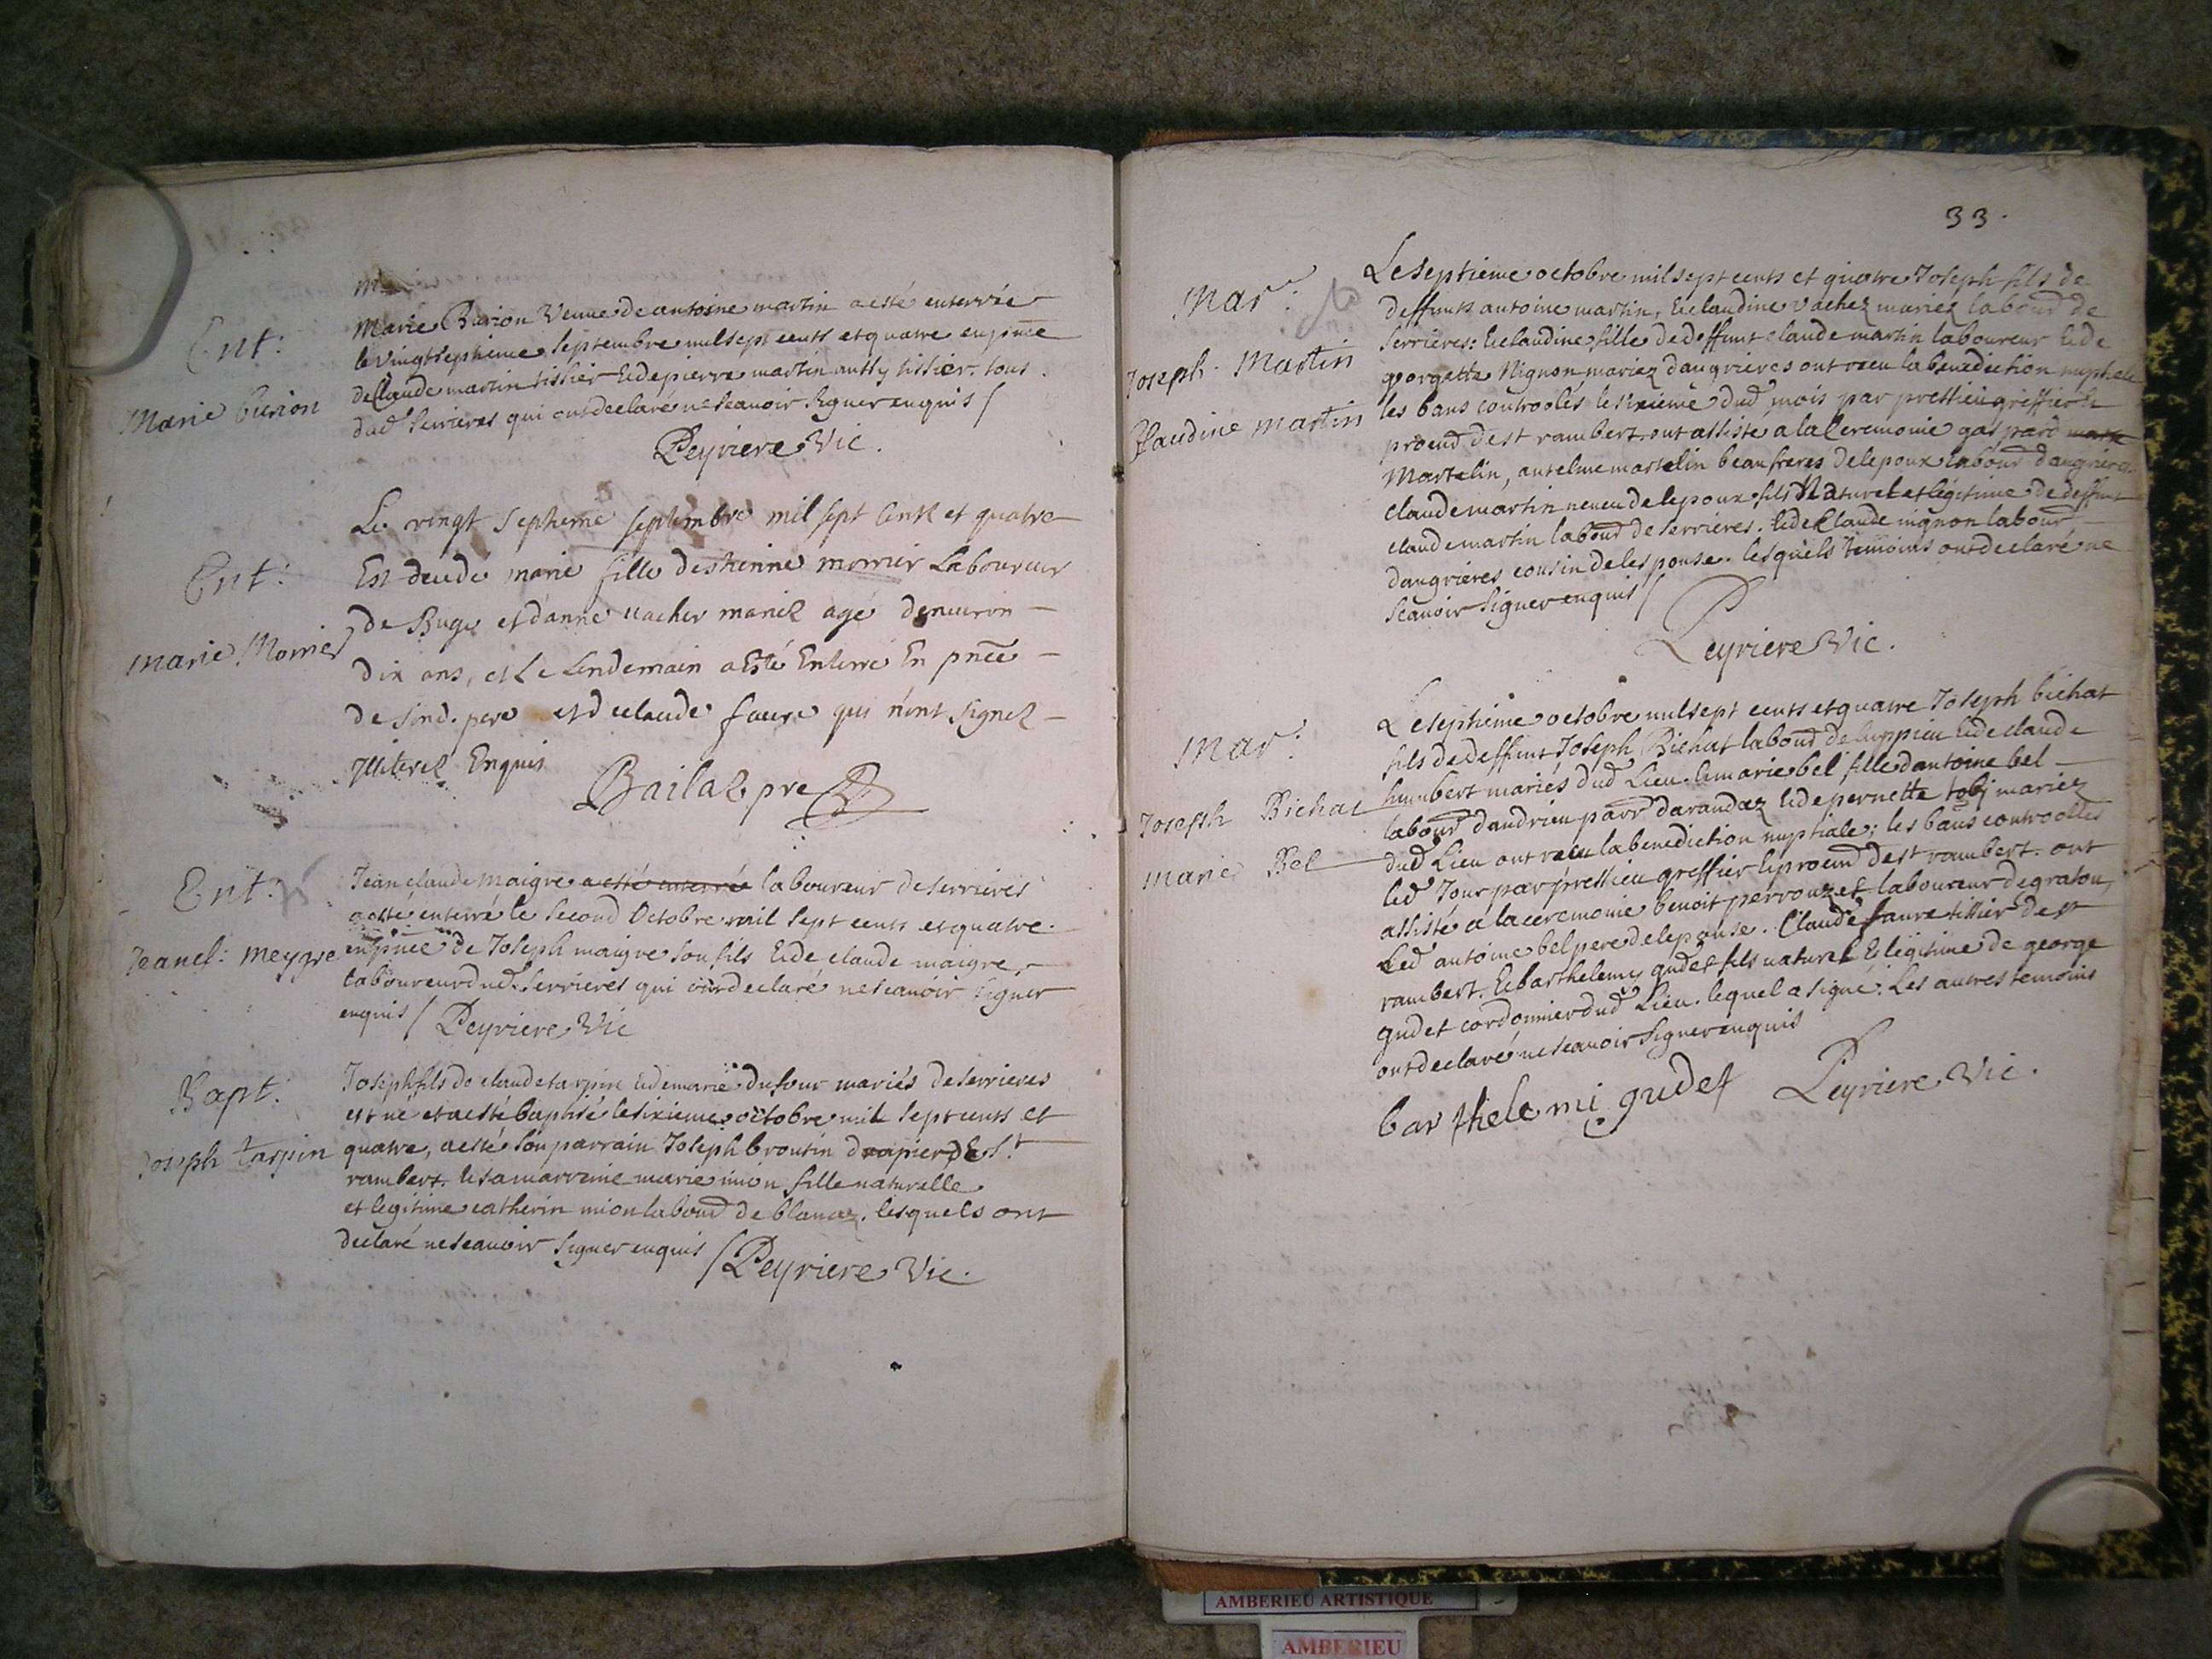 Ent:
Marie Burion
Marie Burion Veuve de antoine martin a esté enterrée
le vingt septieme septembre mil sept cents et quatre en pñce
de Claude martin tissier et de pierre martin aussy tissier. tous
dud Serrieres qui ont declaré ne scavoir signer enquis /
Peyriere Vic.
Ent:
Marie Morrier
Le vingt septieme septembre mil sept Cent et quatre
Est decedé marie fille d'estienne morrier Laboureur
de Buge et d'anne vacher mariez agé denviron
dix ans, et Le Lendemain a Esté Enterré En pñce
de sond. pere et de claude faure qui n'ont signez
Illiterez Enquis
Bailaz pre
Ent:
Jean cl: meygre
Jean claude maigre a esté enterrée laboureur de serrieres
a esté enterré le second Octobre mil sept cents et quatre.
en pñce de Joseph maigre son fils et de claude maigre
laboureur dud. Serrieres qui ont declaré ne scavoir signer
enquis / Peyriere Vic
Bapt:
Joseph tarpin
Joseph fils de claude tarpin et de marie dufour mariés de serrieres
est né et a esté baptisé le sixieme octobre mil sept cents et
quatre, a esté son parrain Joseph broutin drapier de St
rambert. et sa marreine marie mion fille naturelle
et legitime catherin mion labour de blanaz. lesquels ont
declaré ne scavoir signer enquis / Peyriere Vic.
33.
Mar:
Joseph Martin
Claudine martin
Le septieme octobre mil sept cents et quatre Joseph fils de
deffunts antoine martin, et claudine vachez mariez labour de
Serrieres: et claudine fille de deffunt claude martin laboureur et de
georgette Nignon mariez d'angrieres ont receu la benediction nuptiale
les bans controolés le sixieme dud mois par pressieu greffier et
procur de st rambert. ont assisté a la Ceremonie gaspard
Martelin, antelme martelin beaufreres de lepoux labour d'angrieres.
claude martin neveu de lepoux fils Naturel et légitime de deffunt
claude martin labour de serrieres. et de Claude nignon labour
d'angrieres cousin de lespouse. lesquels temoins ont declaré ne
scavoir signer enquis /
Peyriere Vic.
Mar:
Joseph Bichat
Marie Bel
Le septieme octobre mil sept cents et quatre Joseph bichat
fils de deffunt Joseph Bichat labour de luppieu et de claude
humbert mariés dud Lieu. et marie bel fille d'antoine bel
labour d'andrieu parr d'arandaz et de pernette tobj mariez
dud Lieu ont receu la benediction nuptiale; les bans controolles
led Jour par pressieu greffier et procur de st rambert. ont
assisté a la ceremonie benoit perrouzet laboureur de graton,
Led antoine bel pere de lepouse. Claude faure tissier de st
rambert. et barthelemy gudet fils naturel et légitime de george
gudet cordonnier dud Lieu. lequel a signé. Les autres temoins
ont declaré ne scavoir signer enquis
barthelemi gudet Peyriere Vic.
AMBERIEU ARTISTIQUE
AMBERIEU